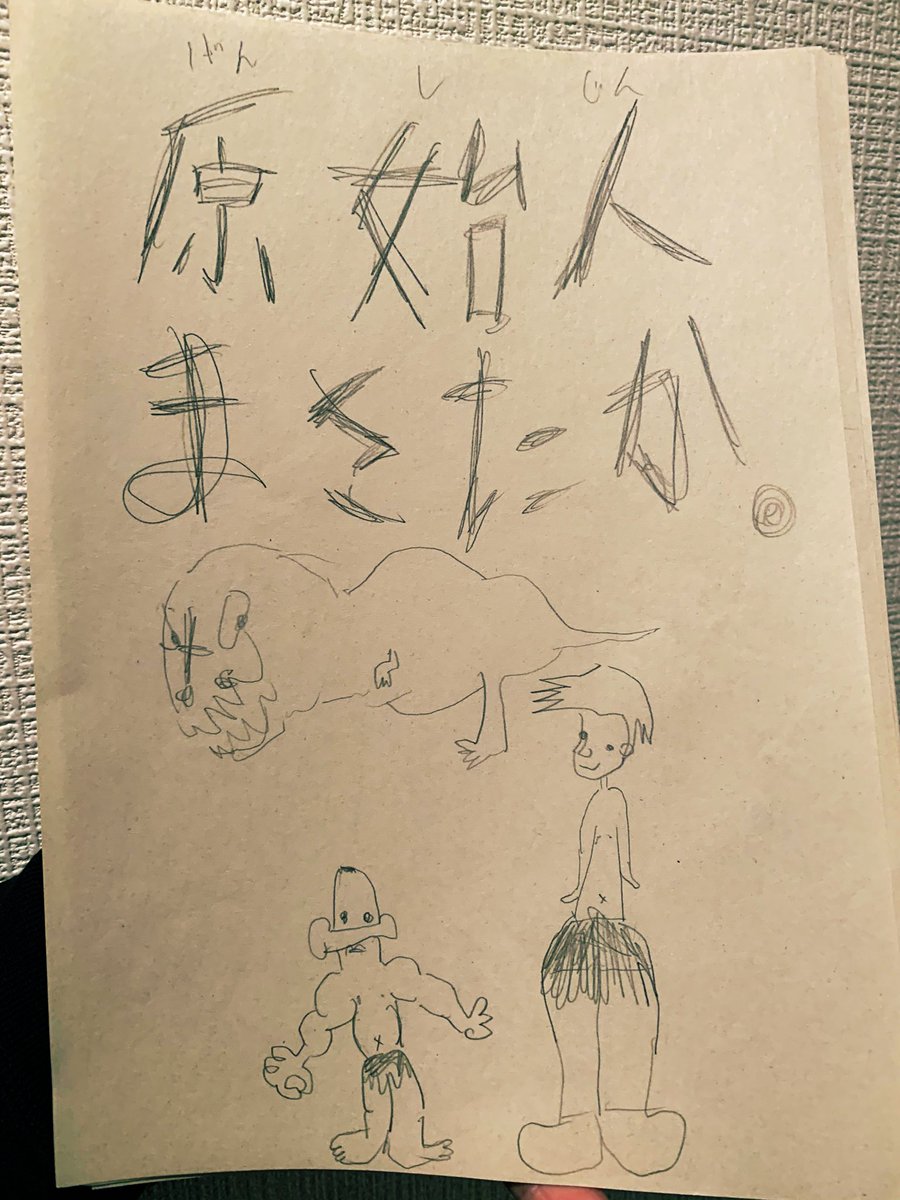 げん し じん
原始人
まさたか®